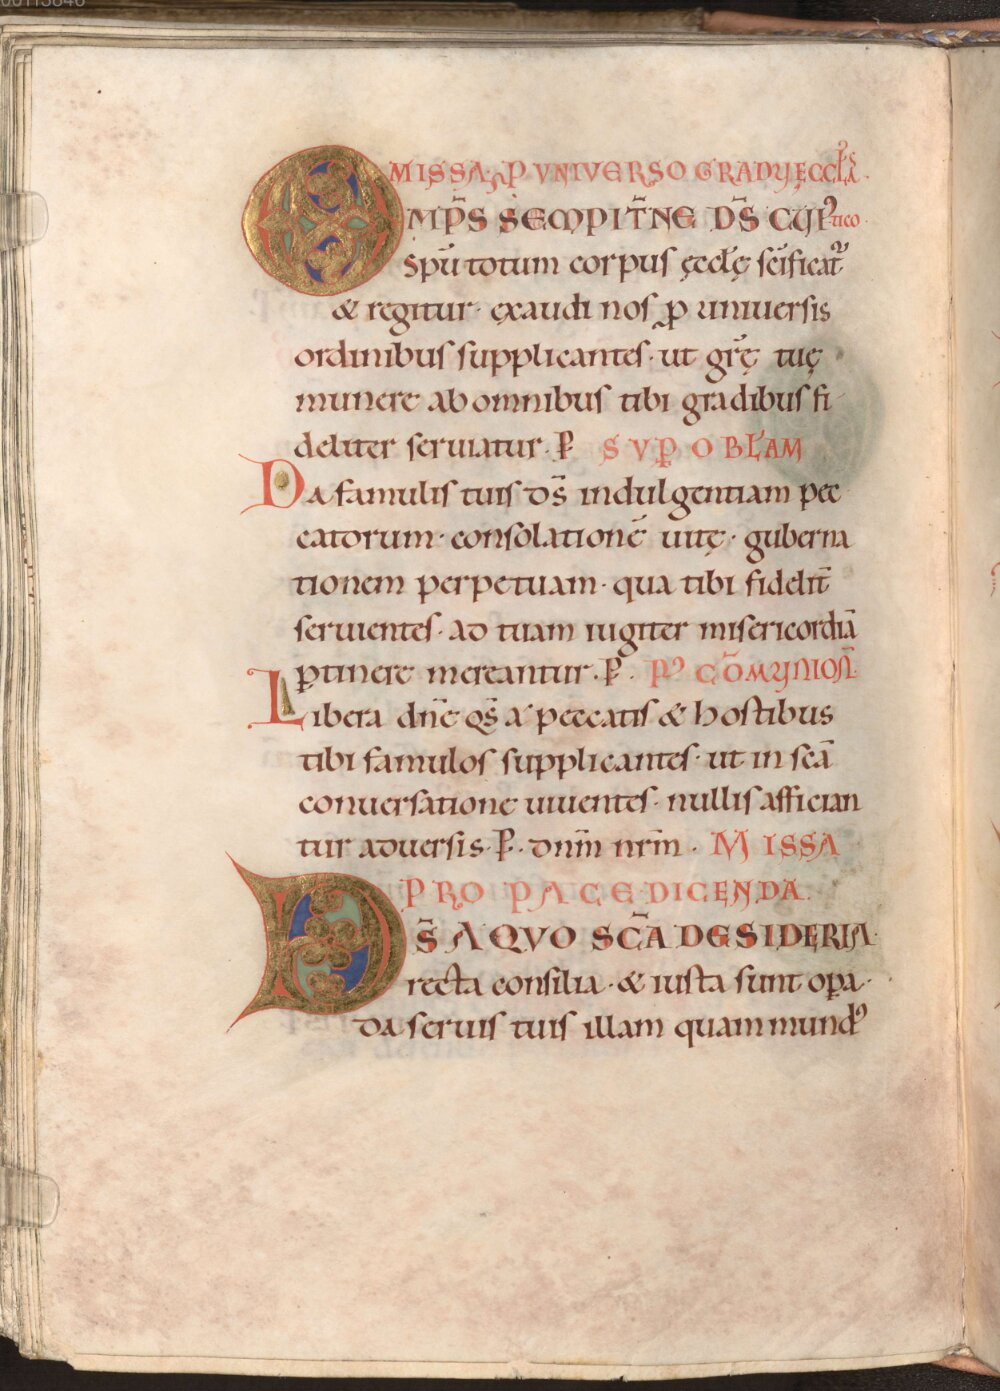 MISSA P UNIVERSO GRADU ECCLA
OMPS SEMPITNE DS CUI9
spu totum corpus ęclę scificat
& regitur· exaudi nos p universis
ordinibus supplicantes· ut grę tuę
munere ab omnibus tibi gradibus fi
deliter serviatur· P SUP OBLAM
Da famulis tuis ds indulgentiam pec
catorum· consolatione vitę· guberna
tionem perpetuam· qua tibi fidelit
servientes· ad tuam iugiter misericordiā
ptinere mereantur· P· P9 CŌMUNION
Libera dne qs a peccatis & hostibus
tibi famulos supplicantes· ut in scā
conversatione viventes· nullis affician
tur adversis· P· dnm nrm· MISSA
PRO PACE DICENDA
DS A QUO SCĀ DESIDERIA·
recta consilia· & iusta sunt opa·
da servis tuis illam quam mund9